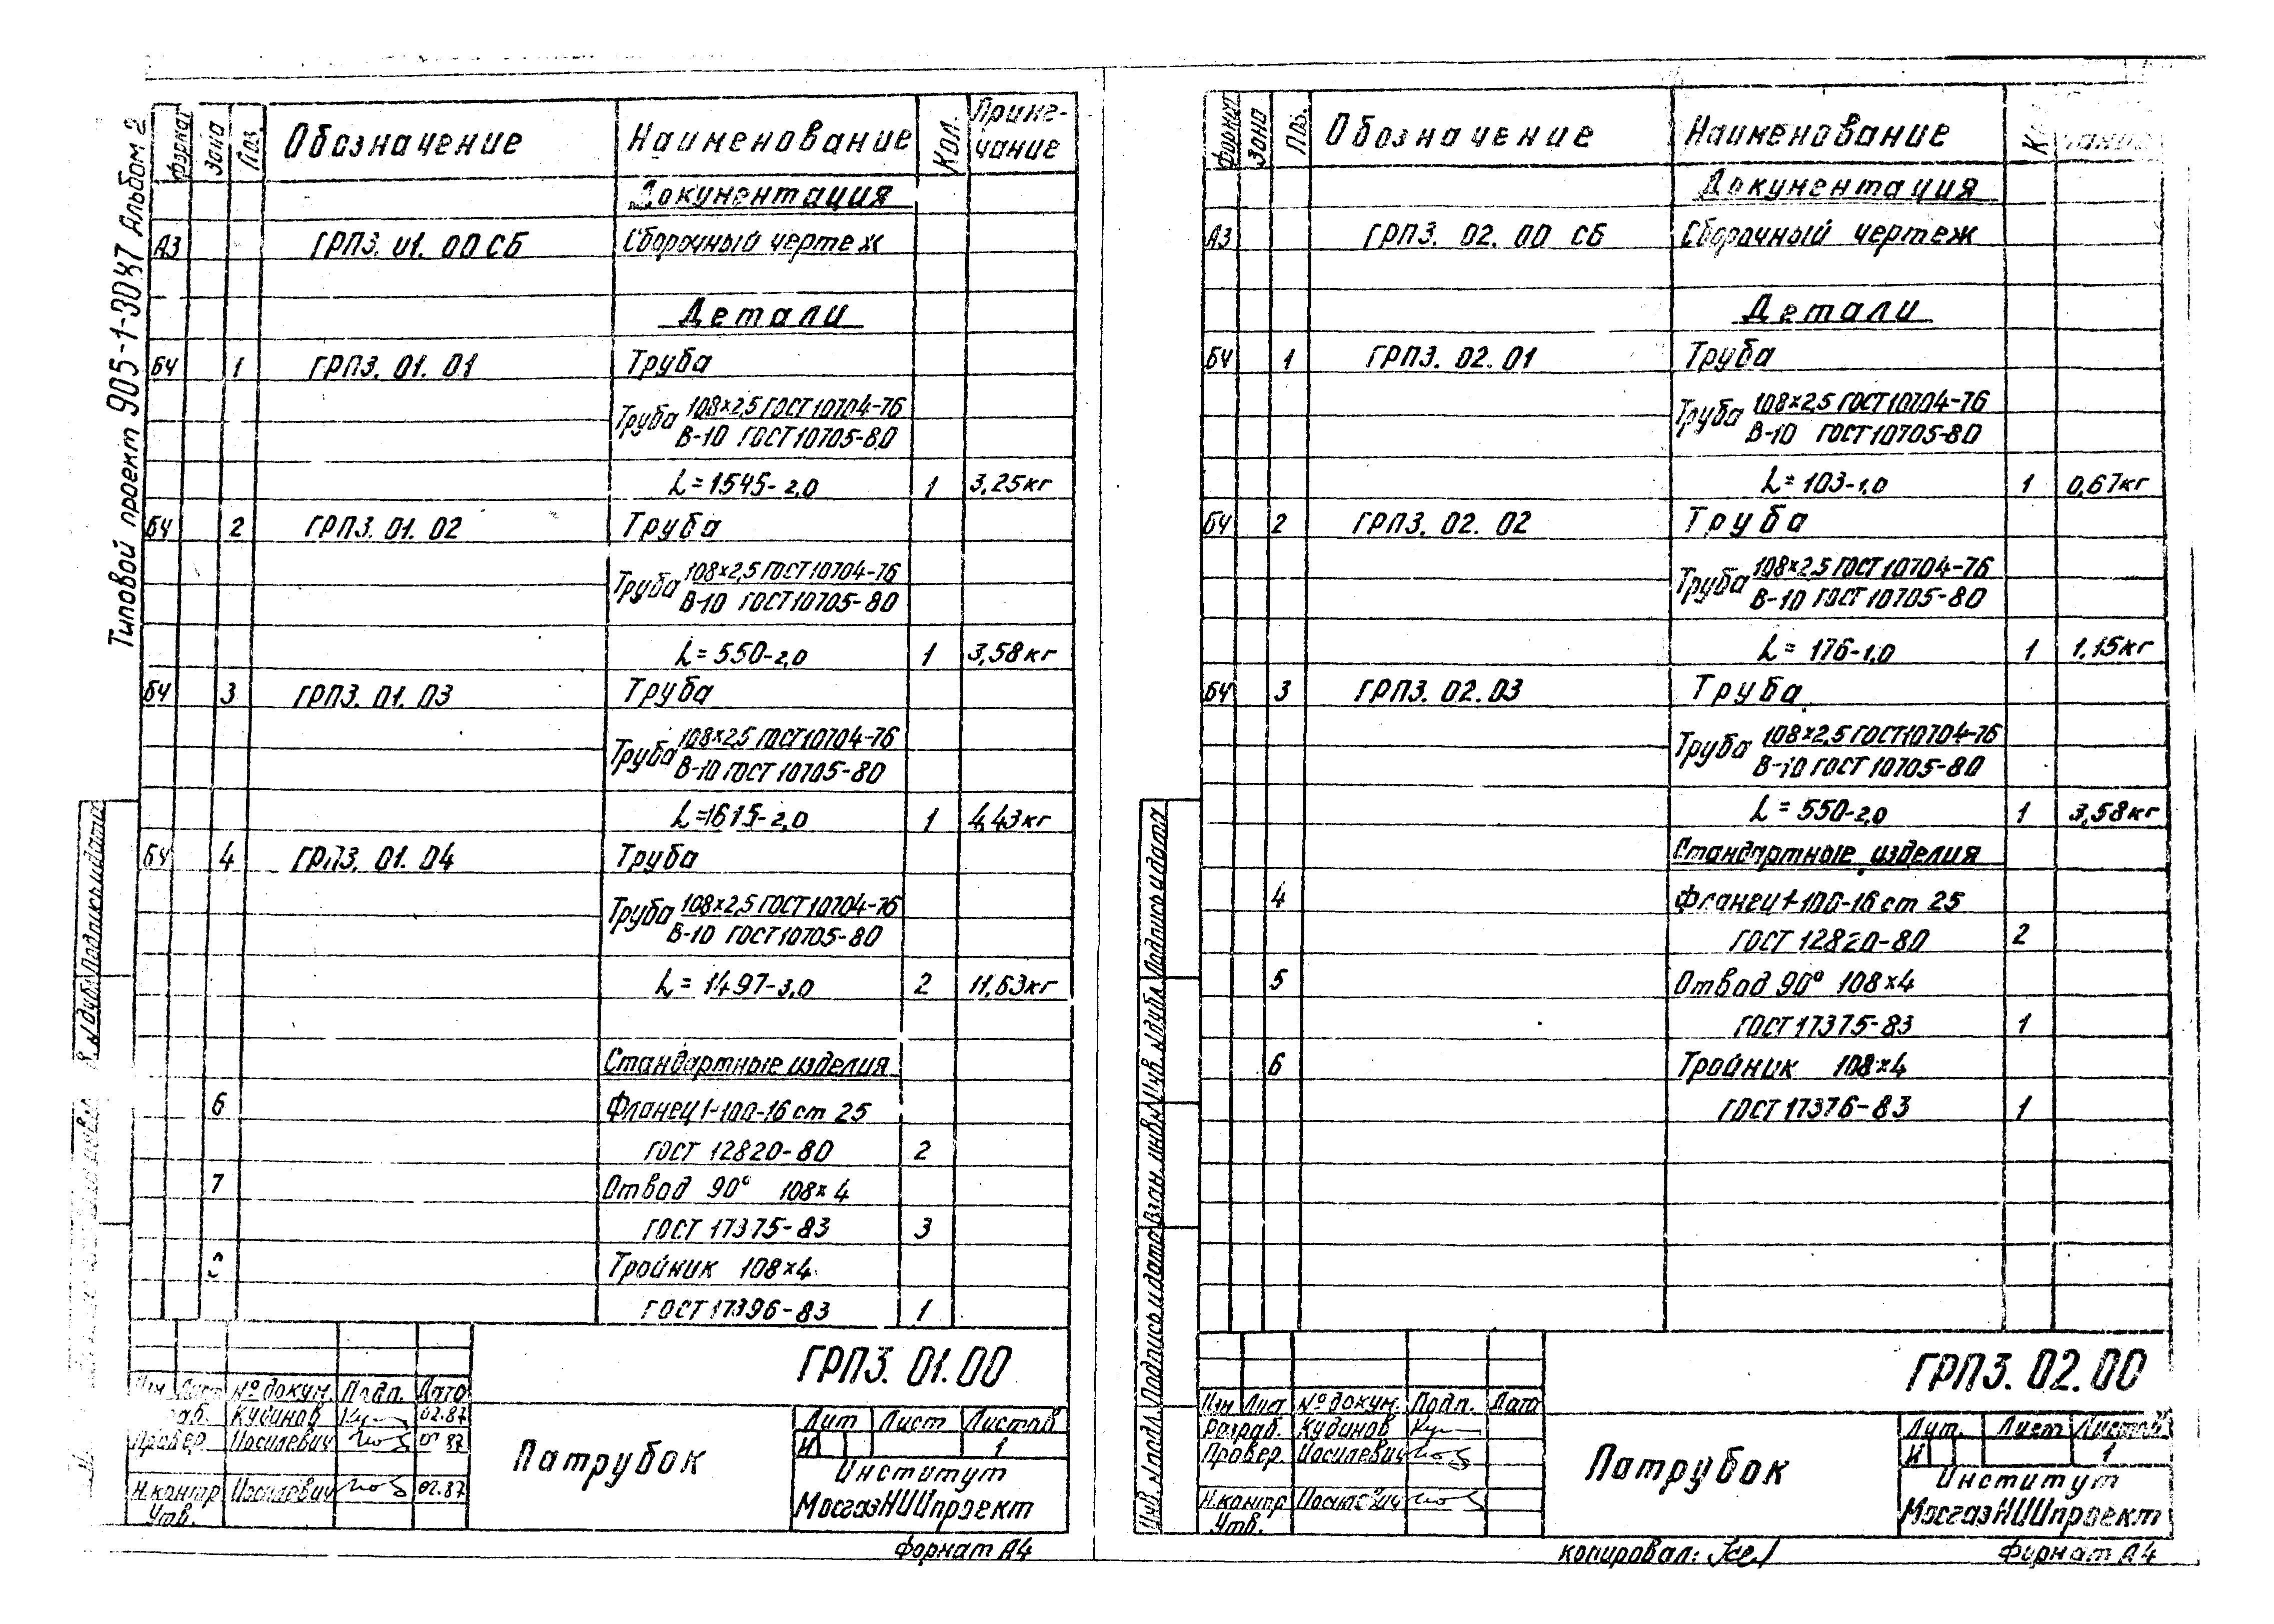 Типовой проект 905-1-30.87 Альбом 2
Формат Зона Поз. Обозначение Наименование Кол. Примечание
Документация
А3 ГРПЗ. 01. 00 СБ Сборочный чертеж
Детали
БЧ 1 ГРПЗ. 01. 01 Труба
Труба 108×2,5 ГОСТ 10704-76
В-10 ГОСТ 10705-80
L=1545-2,0 1 3,25кг
БЧ 2 ГРПЗ. 01. 02 Труба
Труба 108×2,5 ГОСТ 10704-76
В-10 ГОСТ 10705-80
L=550-2,0 1 3,58кг
БЧ 3 ГРПЗ. 01. 03 Труба
Труба 108×2,5 ГОСТ 10704-76
В-10 ГОСТ 10705-80
L=1615-2,0 1 4,43кг
БЧ 4 ГРПЗ. 01. 04 Труба
Труба 108×2,5 ГОСТ 10704-76
В-10 ГОСТ 10705-80
L=1497-3,0 2 11,63кг
Стандартные изделия
6 Фланец 1-100-16 ст 25
ГОСТ 12820-80 2
7 Отвод 90° 108×4
ГОСТ 17375-83 3
Тройник 108×4
ГОСТ 17396-83 1
ГРПЗ. 01.00
Изм Лист № докум. Подп. Дата
Кудинов 02.87
Провер. Иосилевич 02 87
Н.контр Иосилевич 02.87
Утв.
Патрубок
Лит Лист Листов
И 1
Институт
МосгазНИИпроект
Формат А4
Подпись и дата
Формат Зона Поз. Обозначение Наименование
Документация
А3 ГРПЗ. 02. 00 СБ Сборочный чертеж
Детали
БЧ 1 ГРПЗ. 02. 01 Труба
Труба 108×2,5 ГОСТ 10704-76
В-10 ГОСТ 10705-80
L=103-1,0 1 0,67кг
БЧ 2 ГРПЗ. 02. 02 Труба
Труба 108×2,5 ГОСТ 10704-76
В-10 ГОСТ 10705-80
L=176-1,0 1 1,15кг
БЧ 3 ГРПЗ. 02. 03 Труба
Труба 108×2,5 ГОСТ 10704-76
В-10 ГОСТ 10705-80
L=550-2,0 1 3,58кг
Стандартные изделия
4 Фланец 1-100-16 ст 25
ГОСТ 12820-80 2
5 Отвод 90° 108×4
ГОСТ 17375-83 1
6 Тройник 108×4
ГОСТ 17376-83 1
ГРПЗ. 02.00
Изм Лист № докум. Подп. Дата
Разраб. Кудинов
Провер. Иосилевич
Н.контр Иосилевич
Утв.
Патрубок
Лит. Лист Листов
И 1
Институт
МосгазНИИпроект
копировал:
Формат А4
Инв.№подл Подпись и дата Взам.инв.№ Инв.№дубл Подпись и дата